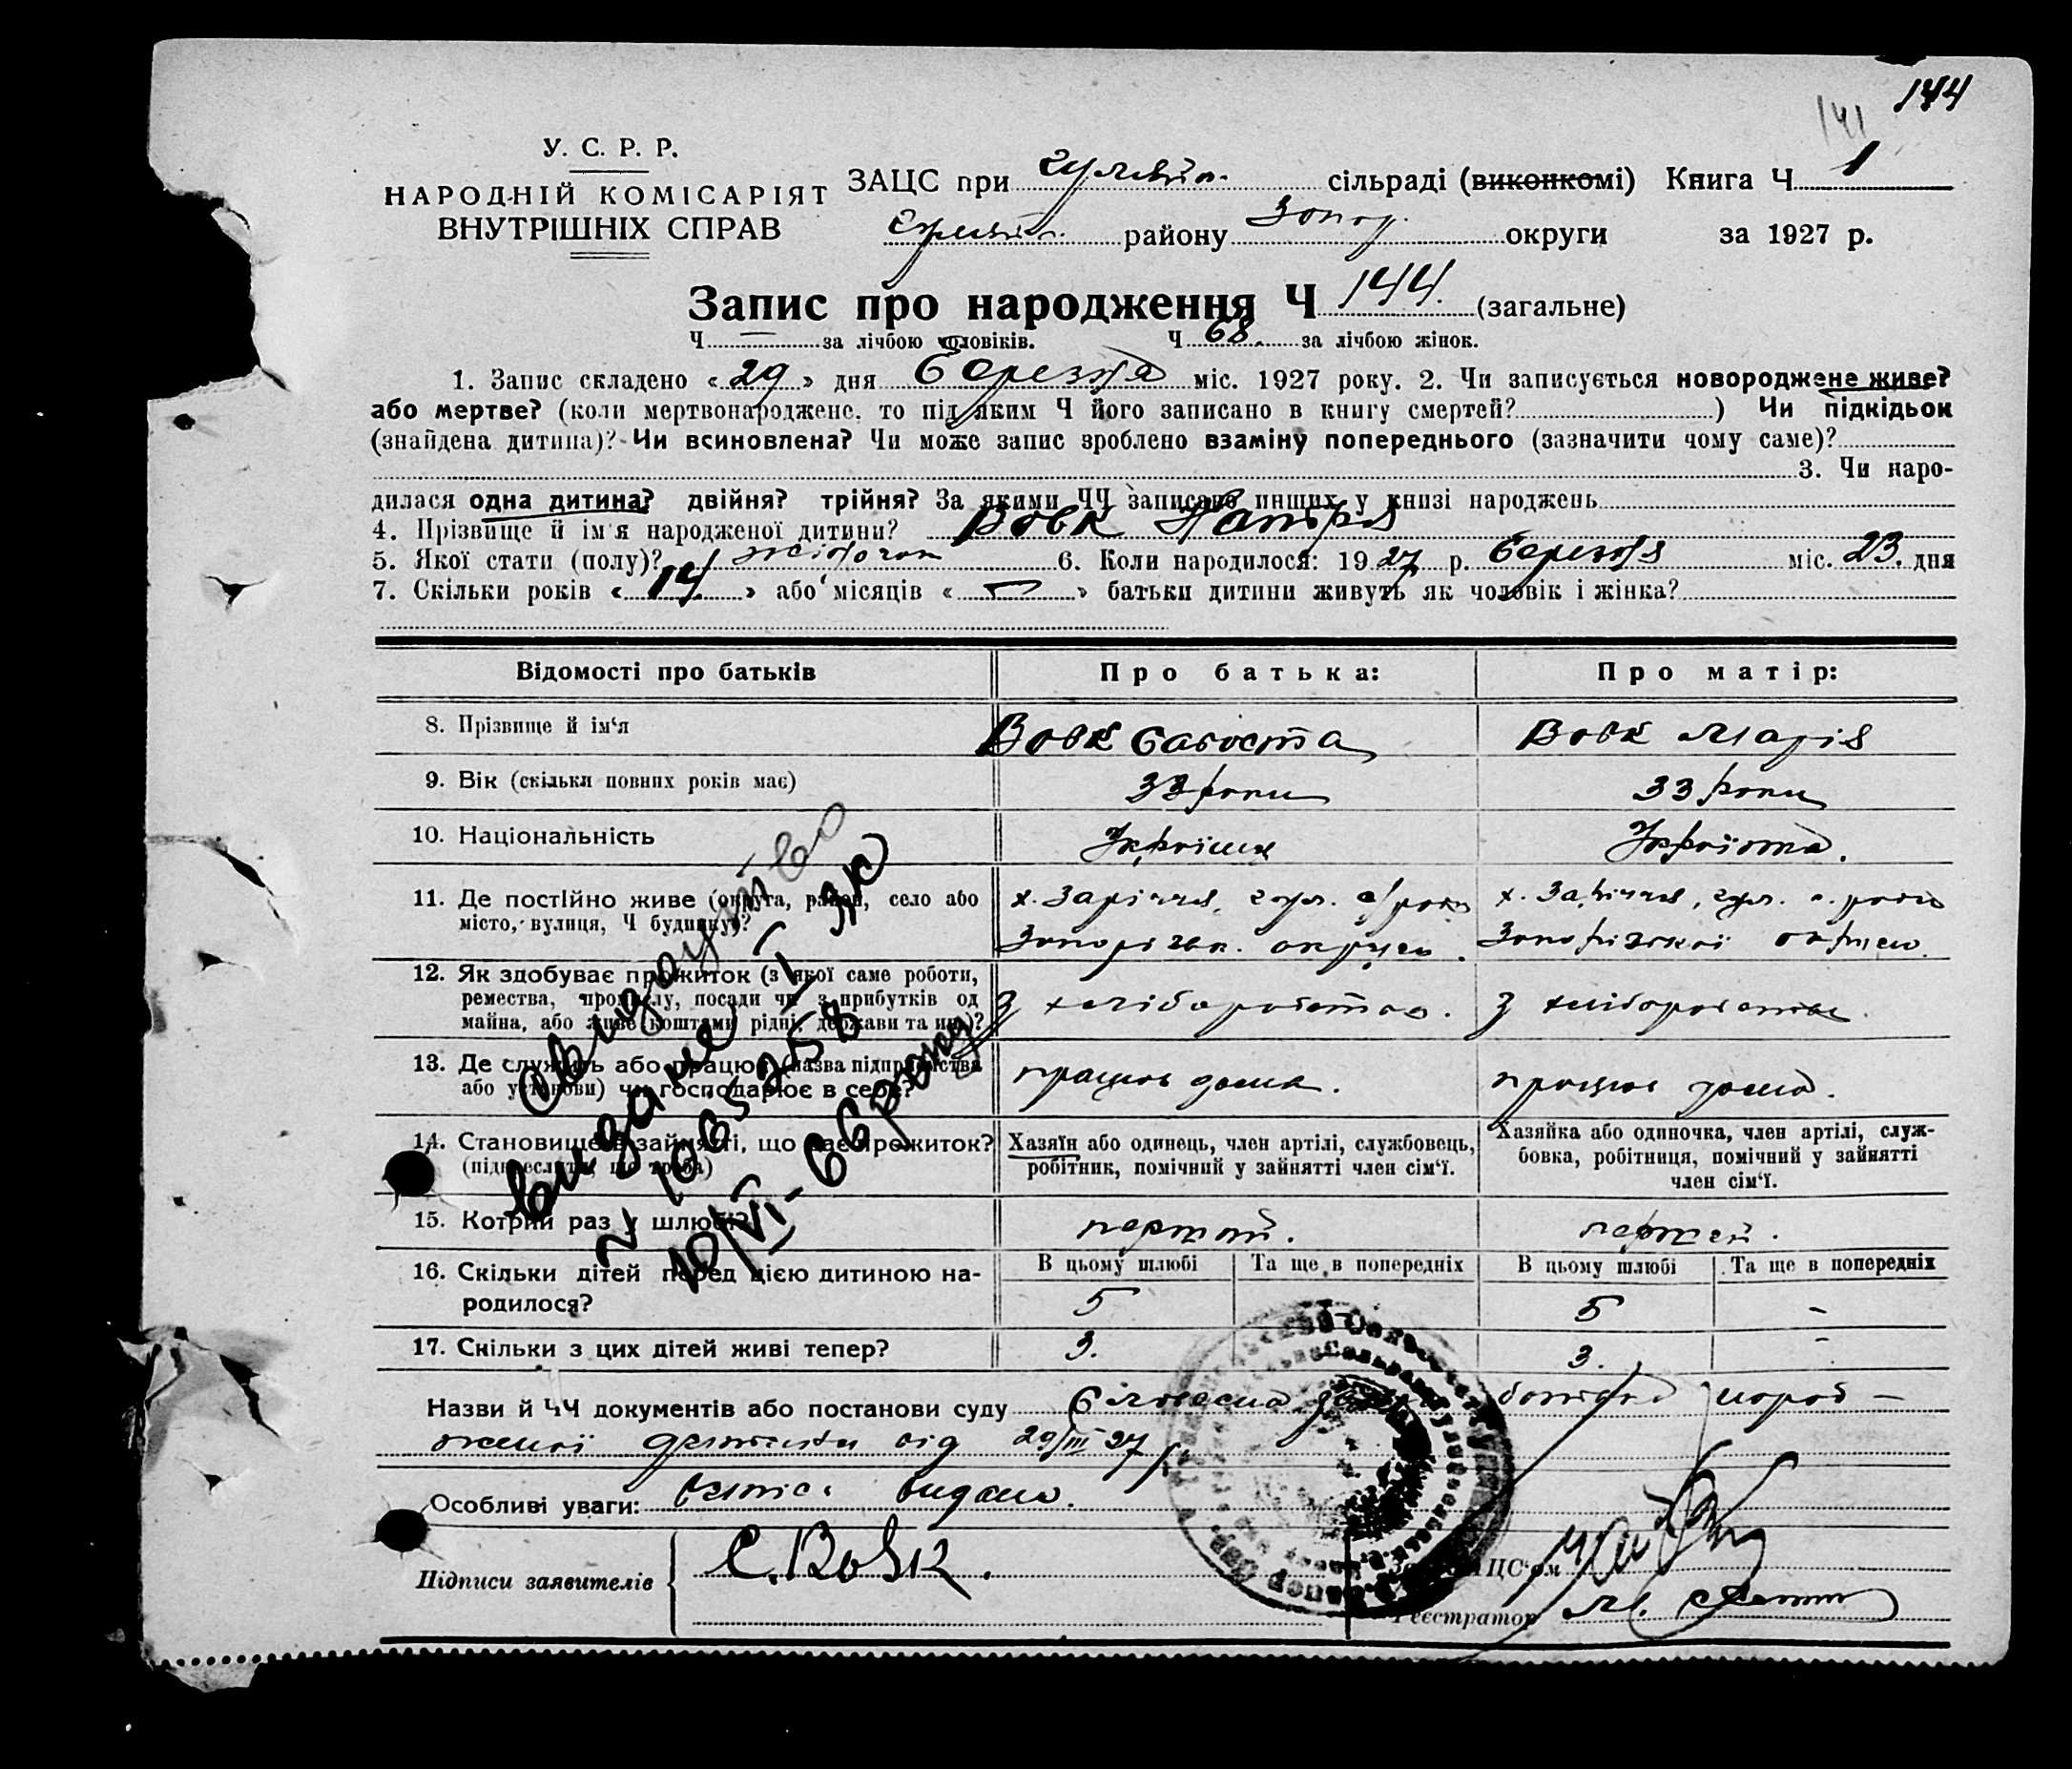 144
141
У. С. Р. Р.
НАРОДНІЙ КОМІСАРІЯТ
ВНУТРІШНІХ СПРАВ
ЗАЦС при Гуляйп. сільраді (виконкомі) Книга Ч 1
району Запор. округи за 1927 р.
Запис про народження Ч 144. (загальне)
Ч — за лічбою чоловіків. Ч 68. за лічбою жінок.
1. Запис складено «29» дня березня міс. 1927 року. 2. Чи записується новороджене живе?
або мертве? (коли мертвонароджене, то під яким Ч його записано в книгу смертей?) Чи підкідьок
(знайдена дитина)? Чи всиновлена? Чи може запис зроблено взаміну попереднього (зазначити чому саме)?
3. Чи наро-
дилася одна дитина? двійня? трійня? За якими ЧЧ записано инших у книзі народжень
4. Прізвище й ім'я народженої дитини? Вовк
5. Якої стати (полу)? жіночої 6. Коли народилося: 1927 р. березня міс. 23. дня
7. Скільки років «14» або місяців «—» батьки дитини живуть як чоловік і жінка?
Відомості про батьків Про батька: Про матір:
8. Прізвище й ім'я Вовк Вовк Марія
9. Вік (скільки повних років має) 33 роки 33 роки
10. Національність Українка.
11. Де постійно живе (округа, район, село або х. Заріччя, гул. району х. Заріччя, гул. району
місто, вулиця, Ч будинку)? Запорізьк. округи. Запорізької округи.
12. Як здобуває прожиток (з якої саме роботи,
ремества, промислу, посади чи з прибутків од з хліборобства. з хліборобства.
майна, або живе коштами рідні, держави та ин.)?
13. Де служить або працює (назва підприємства працює дома. працює дома.
або установи) чи господарює в селі?
14. Становище в зайнятті, що дає прожиток? Хазяїн або одинець, член артілі, службовець, Хазяйка або одиночка, член артілі, служ-
(підкреслити, що треба) робітник, помічний у зайнятті член сім'ї. бовка, робітниця, помічний у зайнятті
член сім'ї.
15. Котрий раз у шлюбі? перший. перший.
16. Скільки дітей перед цією дитиною на- В цьому шлюбі Та ще в попередніх В цьому шлюбі Та ще в попередніх
родилося? 5 5 -
17. Скільки з цих дітей живі тепер? 3. 3. -
Свидоцтво
видане І ЯЮ
N 1035258
10/VI-66 року
Назви й ЧЧ документів або постанови суду батька народ-
женої дитини від 29/III 27 р.
Особливі уваги: видано.
Підписи заявителів С. Вовк.
Зав. ЗАЦС'ом
Реєстратор М.